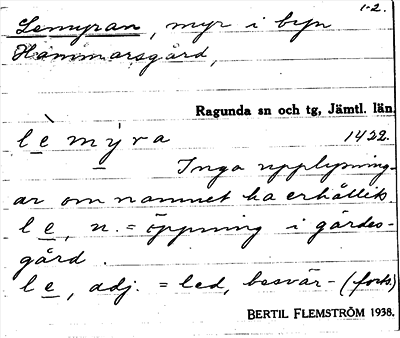 1-2.
Lemyran, myr i byn
Hammarsgård,
Ragunda sn och tg, Jämtl. län.
lè mỳra 1422.
Inga upplysning-
ar om namnet ha erhållits.
le, n. = öppning i gärdes-
gård.
le, adj. = led, besvär- (forts)
BERTIL FLEMSTRÖM 1938.